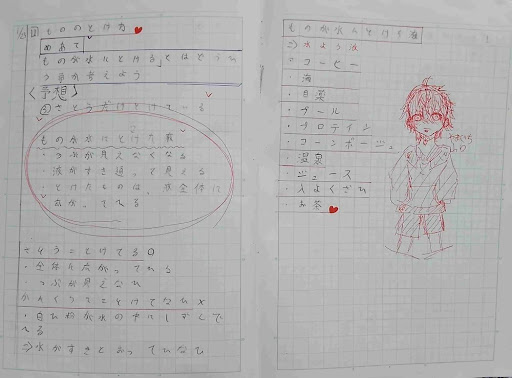 1/21 2 もののとけ方
めあて
ものが水に「とける」とはどうい
う事か考えよう
<予想>
②さとうだけとけている
ものが水にとけた液
・つぶが見えなくなる
・液がすき通って見える
・とけたものは、液全体に
広がっている
さとうことけてる○
・全体に広がっている
・つぶが見えない
かたくりこことけてない×
⇒水がすきとおっていない
ものが水にとけた液
⇒水よう液
・コーヒー
・海
・目薬
・プール
・プロテイン
・コーンポタージュ
・温泉
・ジュース
・入よくざい
・お茶